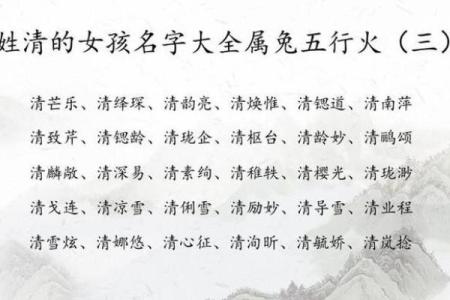 姓清的女孩名字大全属兔五行火（三）
清芒乐、清绎琛、清韵亮、清焕惟、清锶道、清南萍
清致芹、清锶龄、清珑企、清枢台、清龄妙、清鹂颂
清麟敞、清深易、清素绚、清稚轶、清樱光、清珑渺
清戈连、清凉雪、清俐雪、清励妙、清导雪、清业程
清雪炫、清娜悠、清心征、清洵昕、清毓娇、清岚捻